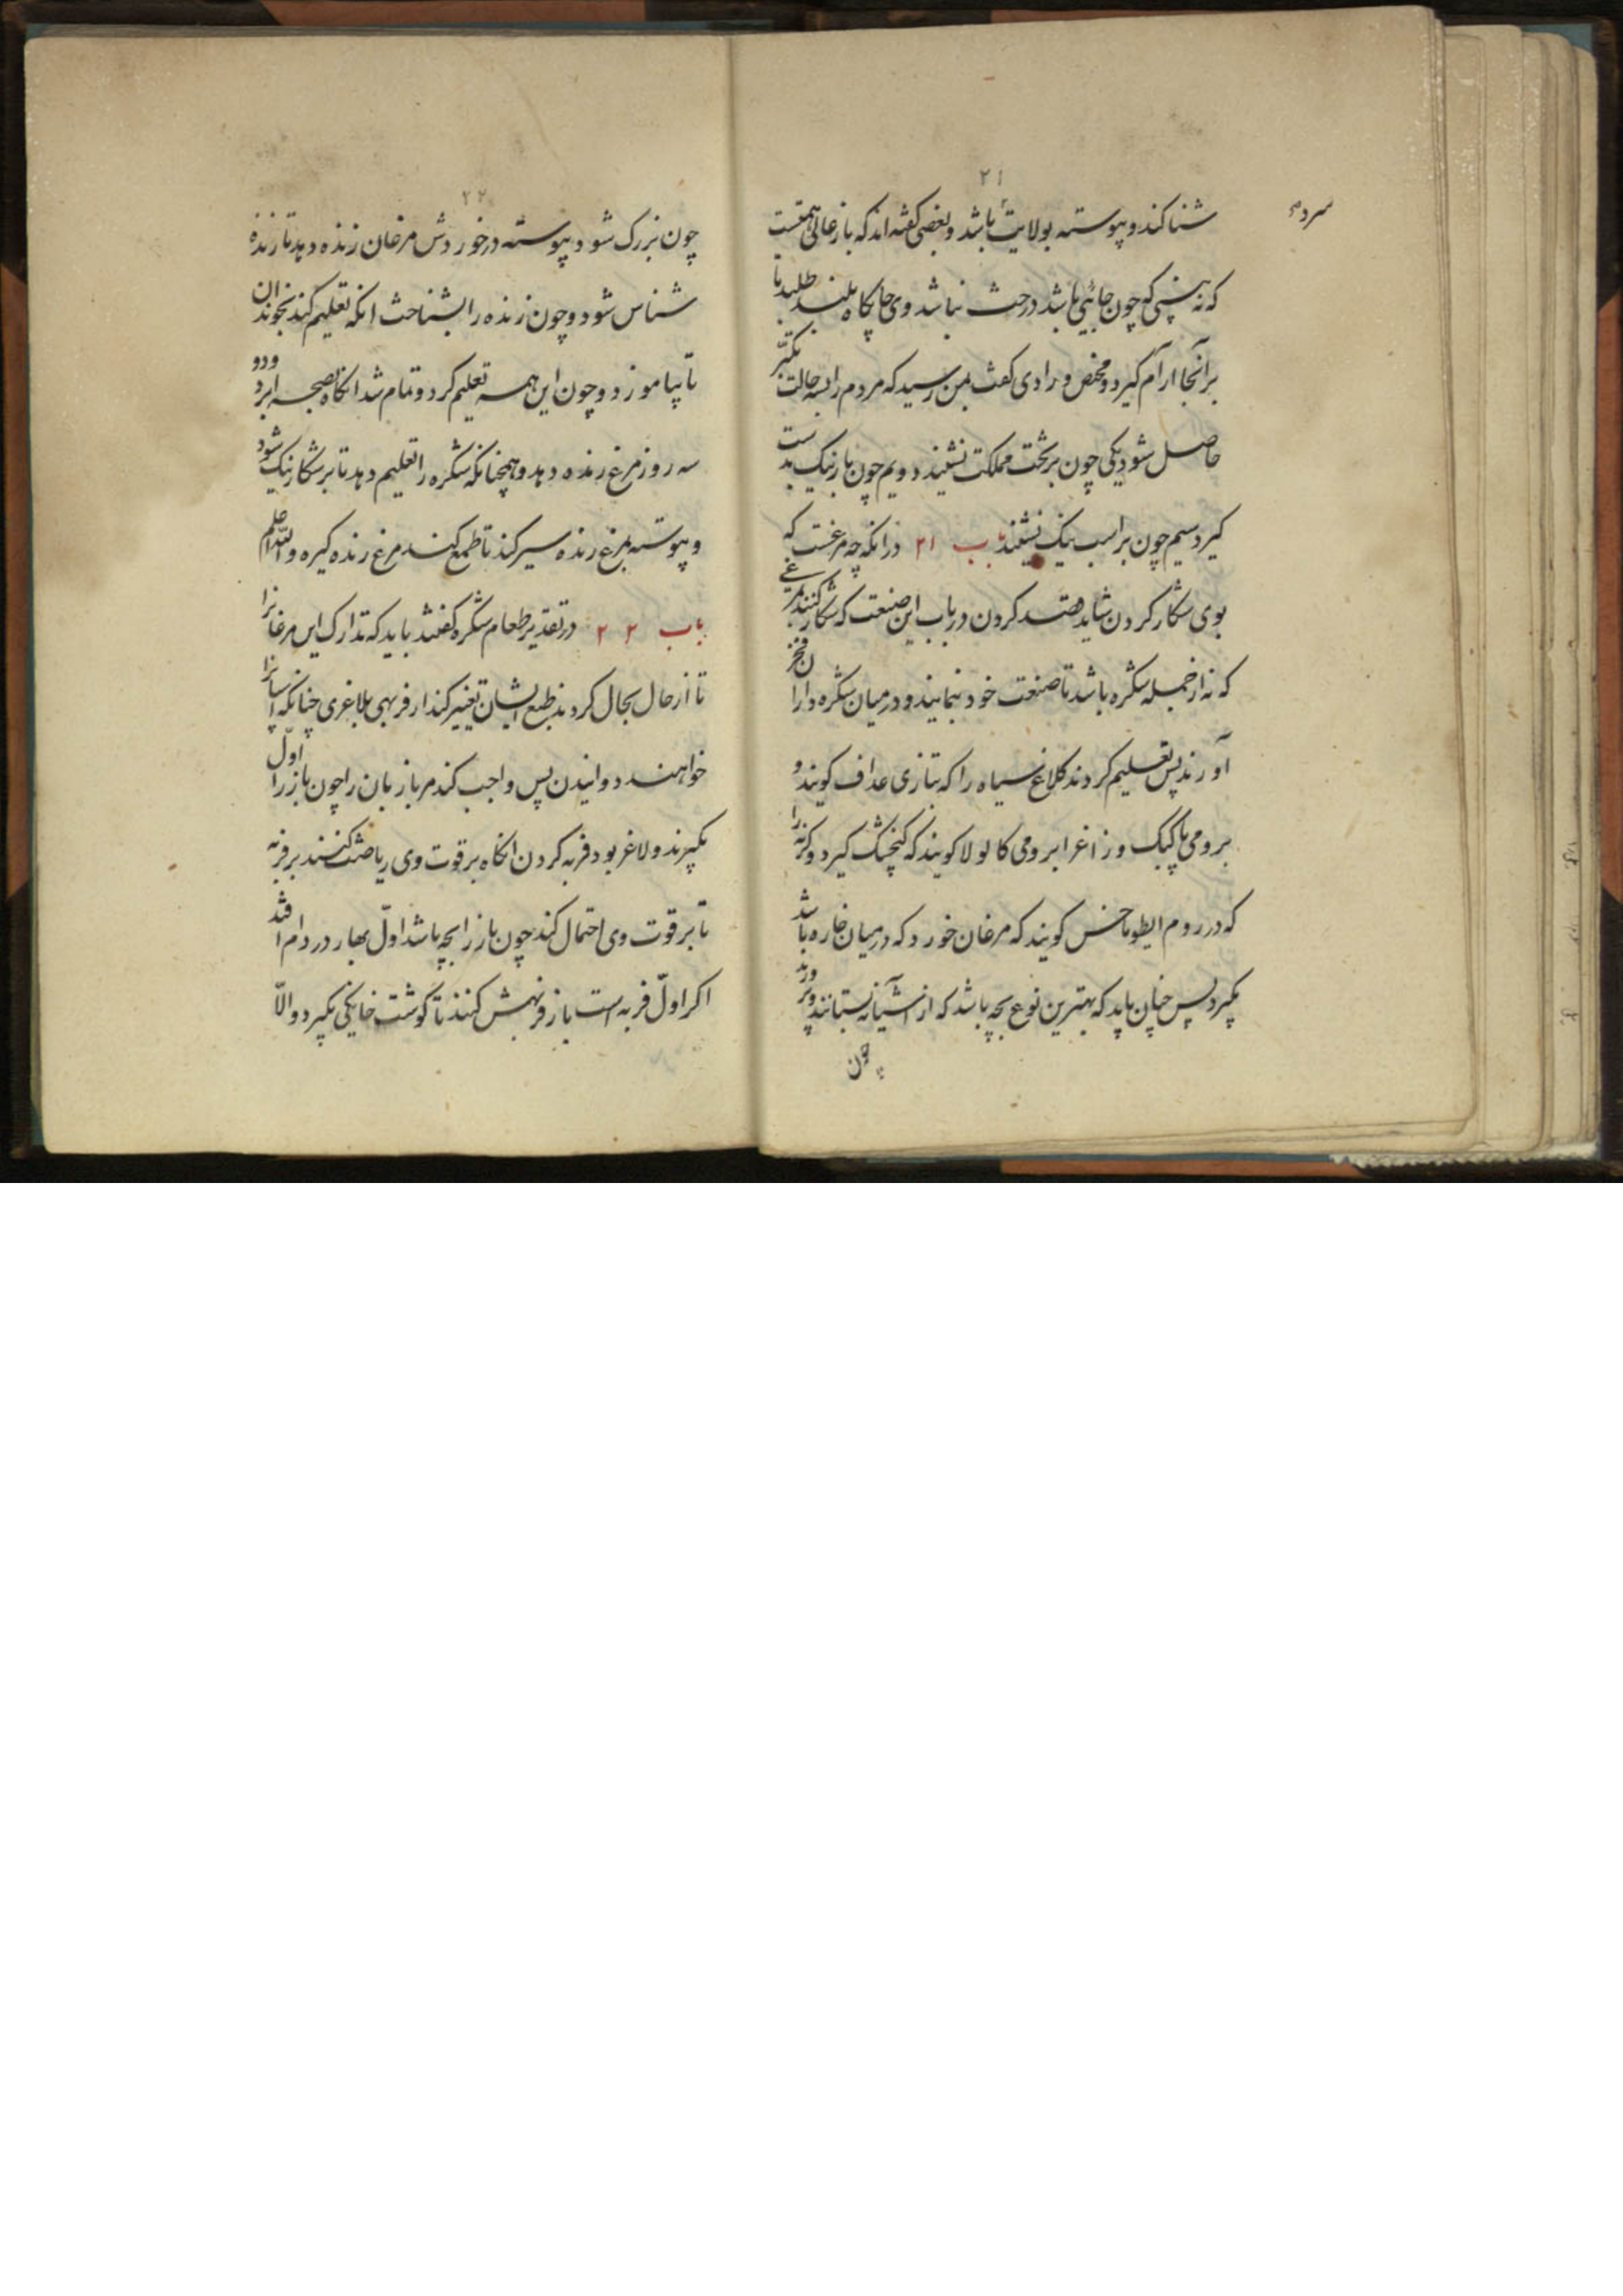 ۲۱
شنا کند و پیوسته بولایت باشد و بعضی گفته اند که باز عالی همتست
که نه بینی که چون جائی باشد درخت نباشد وی جایکاه بلند طلبد تا
برانجا آرام گیرد و مخض و رادی گفت بمن رسید که مردم را بسه حالت تکبّر
حاصل شود یکی چون بر تخت مملکت نشیند دویم چون باز نیک بدست
گیرد سیم چون بر اسب نیک نشیند باب ۲۱ در انکه چه مرغست که
بوی شکار کردن شاید قصد کردن در باب این صنعت که شکار کنند مرغی
که نه از جمله شکره باشد تا صنعت خود بنمایند و در میان شکره داران فخر
آورند پس تعلیم کردند کلاغ سیاه را که بتازی غداف گویند و
برومی پاکبک و زاغ را برومی کالولا گویند که گنجشک گیرد و
که در روم گویند که مرغان خورد که در میان خاره باشد
بگیرد پس چنان باید که بهترین نوع بچه باشد که از آشیانه بستانند و پرورند
چون
۲۲
چون بزرک شود پیوسته در خوردش مرغان زنده دهد تا زنده
شناس شود و چون زنده را بشناخت انکه تعلیم کند بخواندن
تا بیاموزد و چون این همه تعلیم کرد و تمام شد انکاه بصحرا برد و
سه روز مرغ زنده دهد و همچنانکه شکره را تعلیم دهد تا بر شکار نیک شود
و پیوسته بمرغ زنده سیر کند تا طمع کند مرغ زنده گیرد و الله اعلم
باب ۲۲ در تقدیر طعام شکره گفتند باید که تدارک این مرغانرا
تا از حال بحال کردند طبع ایشان تغییر کند از فربهی بلاغری چنانکه اسپانرا
خواهند دوانیدن پس واجب کند مر بازبان را چون باز را اوّل
بگیرند و لاغر بود فربه کردن انکاه بر قوت وی ریاضت کنند بر فربه
تا بر قوت وی احتمال کند چون باز را بچه باشد اوّل بهار در دام افتد
اکر اوّل فربه است باز فربهش کنند تا گوشت خانگی بگیرد و الّا